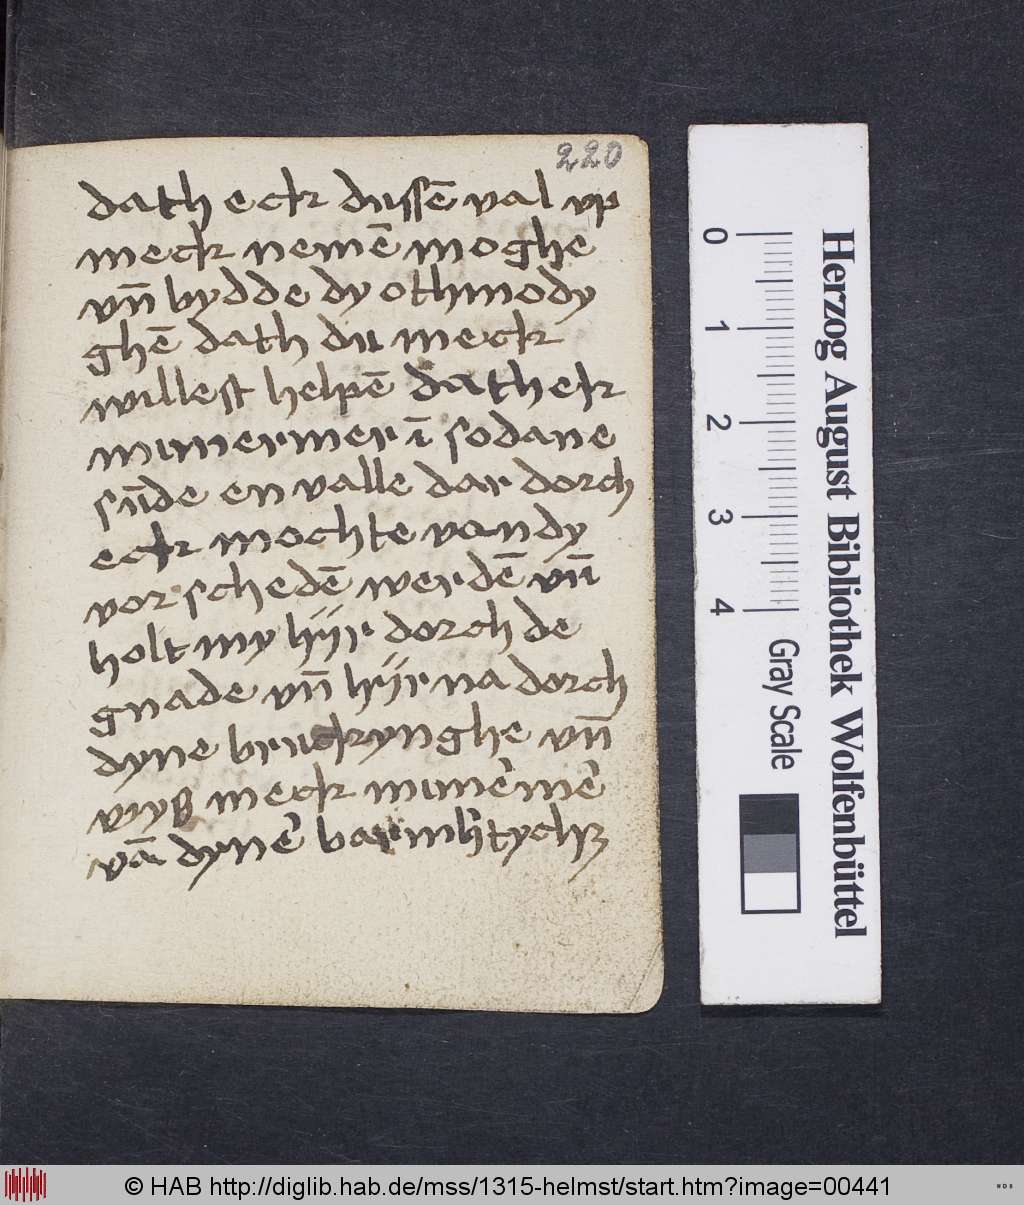 220
dath eck dussē val vp
meck nemē moghe
vn̄ bydde dy othmody
ghē dath du meck
willest helpē dath ek
nummermer ī sodane
sūde en valle dar dorch
eck mochte van dy
vorschedē werdē vn̄
holt my hÿr dorch de
gnade vn̄ hÿr na dorch
dyne bruckynghe vn̄
wyß meck
vā dyner
Herzog August Bibliothek Wolfenbüttel
0 1 2 3 4
Gray Scale
© HAB http://diglib.hab.de/mss/1315-helmst/start.htm?image=00441